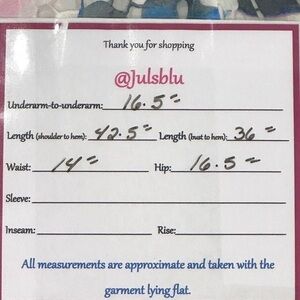 Thank you for shopping
@Julsblu
Underarm-to-underarm: 16.5"
Length (shoulder to hem): 42.5" Length (bust to hem): 36"
Waist: 14" Hip: 16.5"
Sleeve:
Inseam: Rise:
All measurements are approximate and taken with the
garment lying flat.